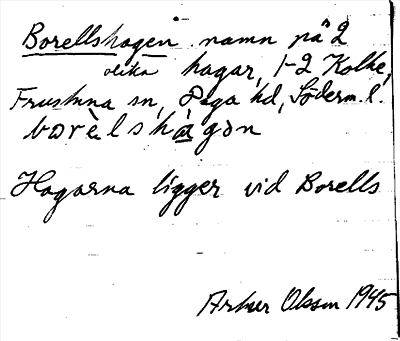 Borellshagen namn på 2
olika hagar, 1-2 Kolbe,
Frustuna sn, Daga hd, Söderm. l.
bɷrèlshagən
Hagarna ligger vid Borells
Arthur Olsson 1945